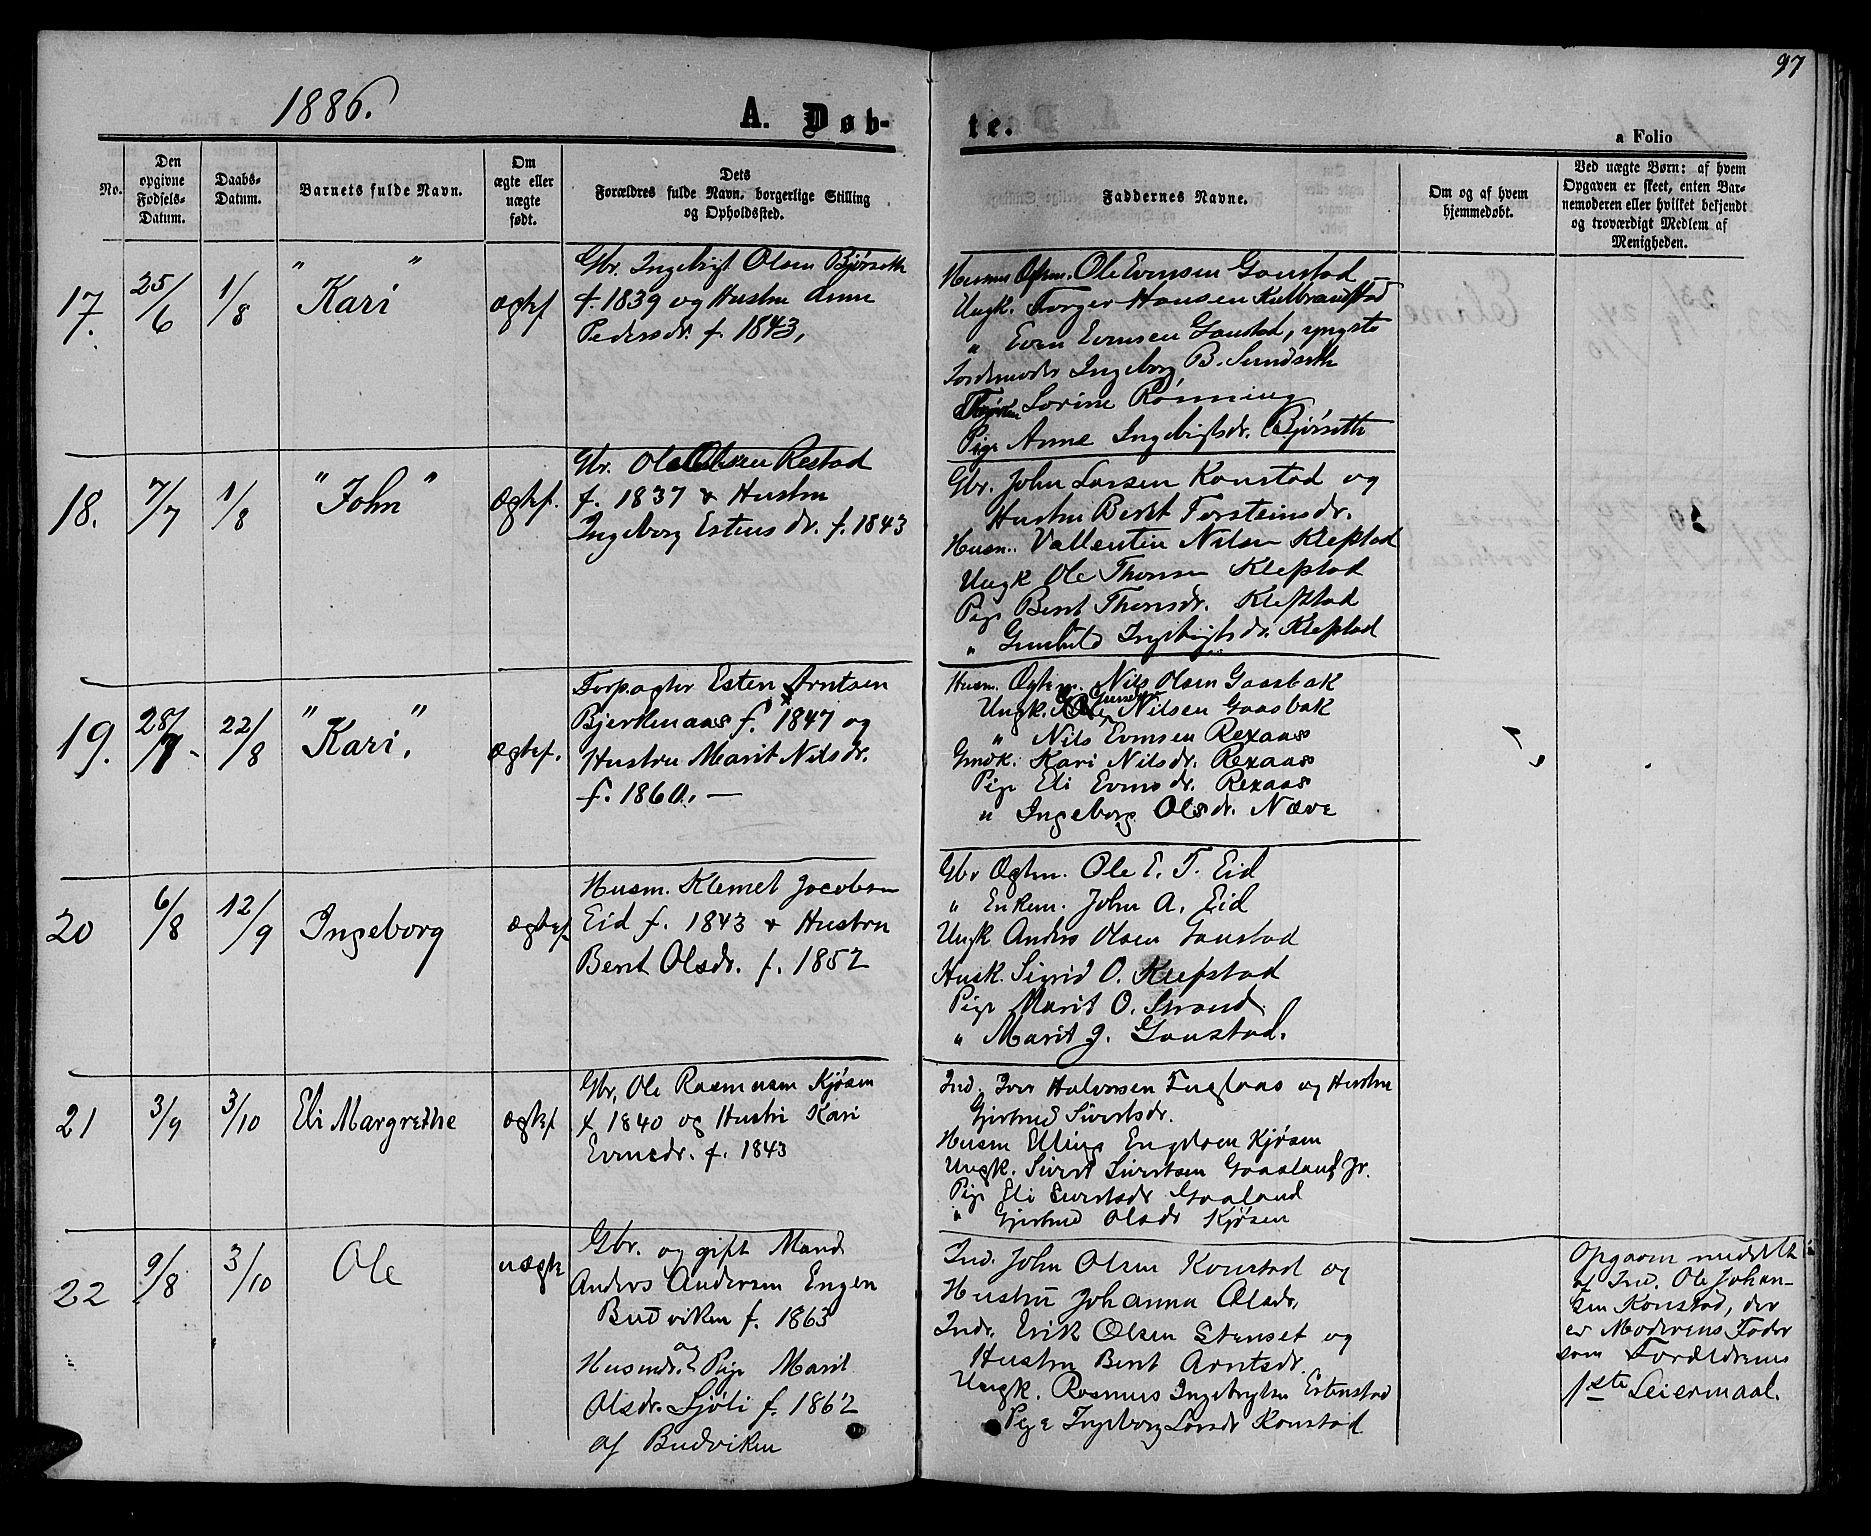 97
1886.
A. Døb-
te.
a Folio
No.
Den opgivne Fødsels-Datum.
Daabs-Datum.
Barnets fulde Navn.
Om ægte eller uægte født.
Dets Forældres fulde Navn, borgerlige Stilling og Opholdssted.
Faddernes Navne.
Om og af hvem hjemmedøbt.
Ved uægte Børn: af hvem Opgaven er skeet, enten Barnemoderen eller hvilket bekjendt og troværdigt Medlem af Menigheden.
17. 25/6 1/8 " Kari " ægtef
Gbr. Ingebrigt Olsen Bjørseth
f. 1839 og Hustru Anne
Pedersdr. f. 1843,
Ole Evensen Gaustad
Ungk. Torger Hansen Kulbrandstad
" Even Evensen Gaustad, yngste
Jordemoder Ingeborg B. Sundseth
Sorine Rønning
Pige Anne Ingebrigtsdr. Bjørseth
18. 7/7 1/8 "John" ægtef.
Gbr. Ole Olsen Restad
f. 1837 & Hustru
Ingeborg Estensdr. f. 1843
Gbr. John Larsen Konstad og
Hustru Berit Torsteinsdr.
Husm. Vallentin Nilsen Klefstad
Ungk Ole Thomsen Klefstad
Pige Berit Thomsdr. Klefstad
" Gunhild Ingebrigtsdr. Klefstad
19. 28/7 22/8 "Kari" ægtef.
Forpagter Esten Arntsen
Bjerkenaas f. 1847 og
Hustru Marit Nilsdr.
f. 1860. —
Husm. Ægtem. Nils Olsen Gaasbak
Ungk. Nilsen Gaasbak
" Nils Evensen Rexaas
Gmdk. Kari Nilsdr. Rexaas
Pige Eli Evensdr. Rexaas
" Ingeborg Olsdr. Næve
20 6/8 12/9 Ingeborg ægtef.
Husm. Klemet Jacobsen
Eid f. 1843 & Hustru
Berit Olsdr. f. 1852
Gbr Ægtm. Ole E. T. Eid
" Enkem. John A. Eid
Ungk Anders Olsen Gaustad
Husk. Sigrid O. Klefstad
Pige Marit O. Strand
" Marit J. Gaustad.
21 3/9 3/10 Eli Margrethe ægtef
Gbr. Ole Rasmusen Kjøsen
f. 1840 og Hustru Kari
Evensdr. f. 1843
Ind. Iver Halvorsen Fuglaas og Hustru
Gjertrud Sivertsdr.
Husm Elling Engelsen Kjøsen
Ungk. Sivert Sivertsen Gaaland Jr.
Pige Eli Sivertsdr Gaaland
" Gjertrud Olsdr Kjøsen
22 9/8 3/10 Ole uægte
Gbr. og gift Mand
Anders Andersen Engen
Budviken f. 1863
og
Husmdr. Pige Marit
Olsdr. Sjøli f. 1862
af Budviken
Ind. John Olsen Konstad og
Hustru Johanna Olsdr.
Indr. Erik Olsen Stenset og
Hustru Berit Arntsdr.
Ungk. Rasmus Ingebrigtsen Estenstad
Pige Ingeborg Larsdr Konstad
Opgaven meddelt
af Ind. Ole Johan-
sen Konstad, der
er Moderens Fader
som Forældrenes
1ste Leiermaal.